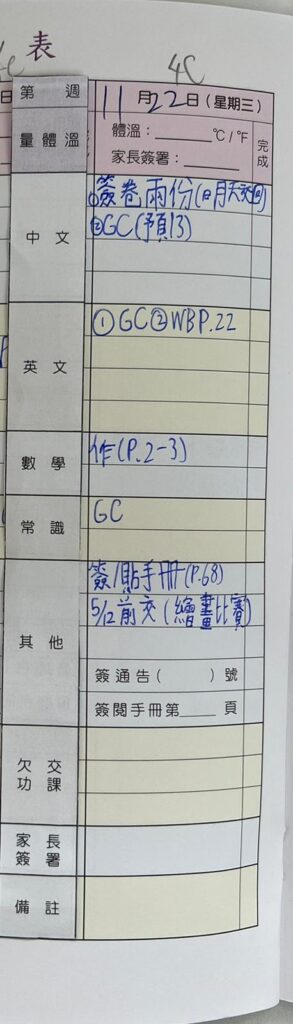 表
4C
第 週
11月22日(星期三)
量體溫
體溫:______℃/℉
家長簽署:______
完成
中文
①簽卷兩份(日月天交回)
②GC(預13)
英文
①GC②WBP.22
數學
作(P.2-3)
常識
GC
其他
簽/貼手冊(P.68)
5/12前交(繪畫比賽)
簽通告( )號
簽閱手冊第____頁
欠交功課
家長簽署
備註